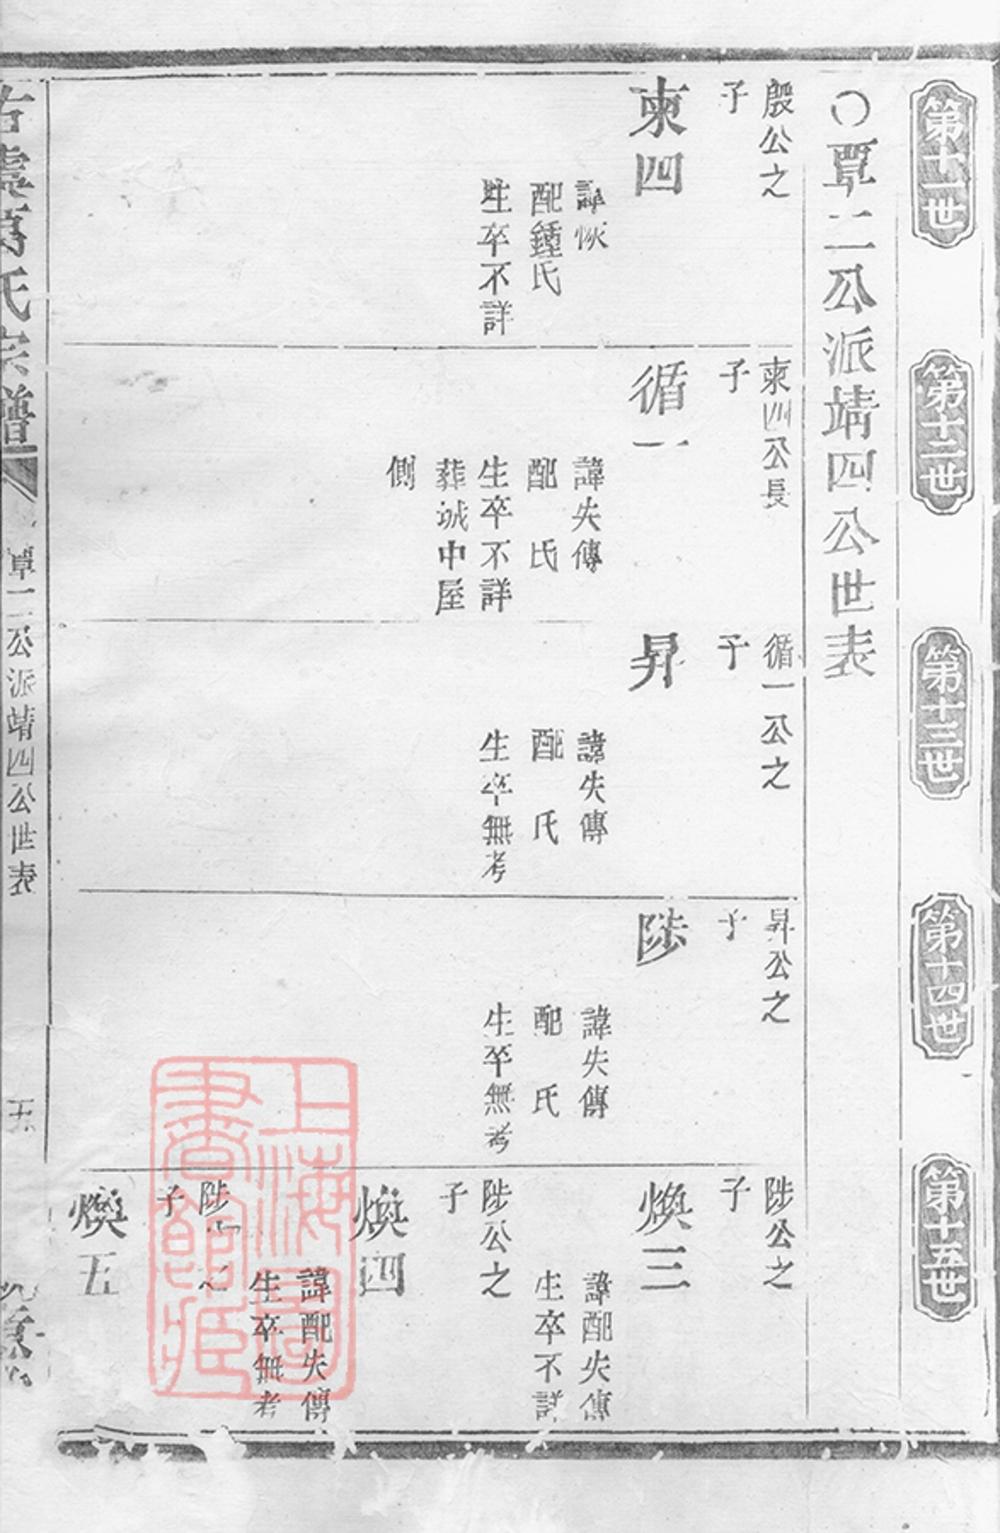 第十一世
第十二世
第十三世
第十四世
第十五世
○覃二公派靖四公世表
殷公之
子
柬四
諱恢
配鍾氏
生卒不詳
柬四公長
子
循一
諱失傳
配　氏
生卒不詳
葬城中屋
側
循一公之
子
昇
諱失傳
配　氏
生卒無考
昇公之
子
陟
諱失傳
配　氏
生卒無考
陟公之
子
煥三
諱配失傳
生卒不詳
陟公之
子
煥四
諱配失傳
生卒無考
陟公之
子
煥五
古虞葛氏宗譜
覃二公派靖四公世表
五
上海圖
書館藏